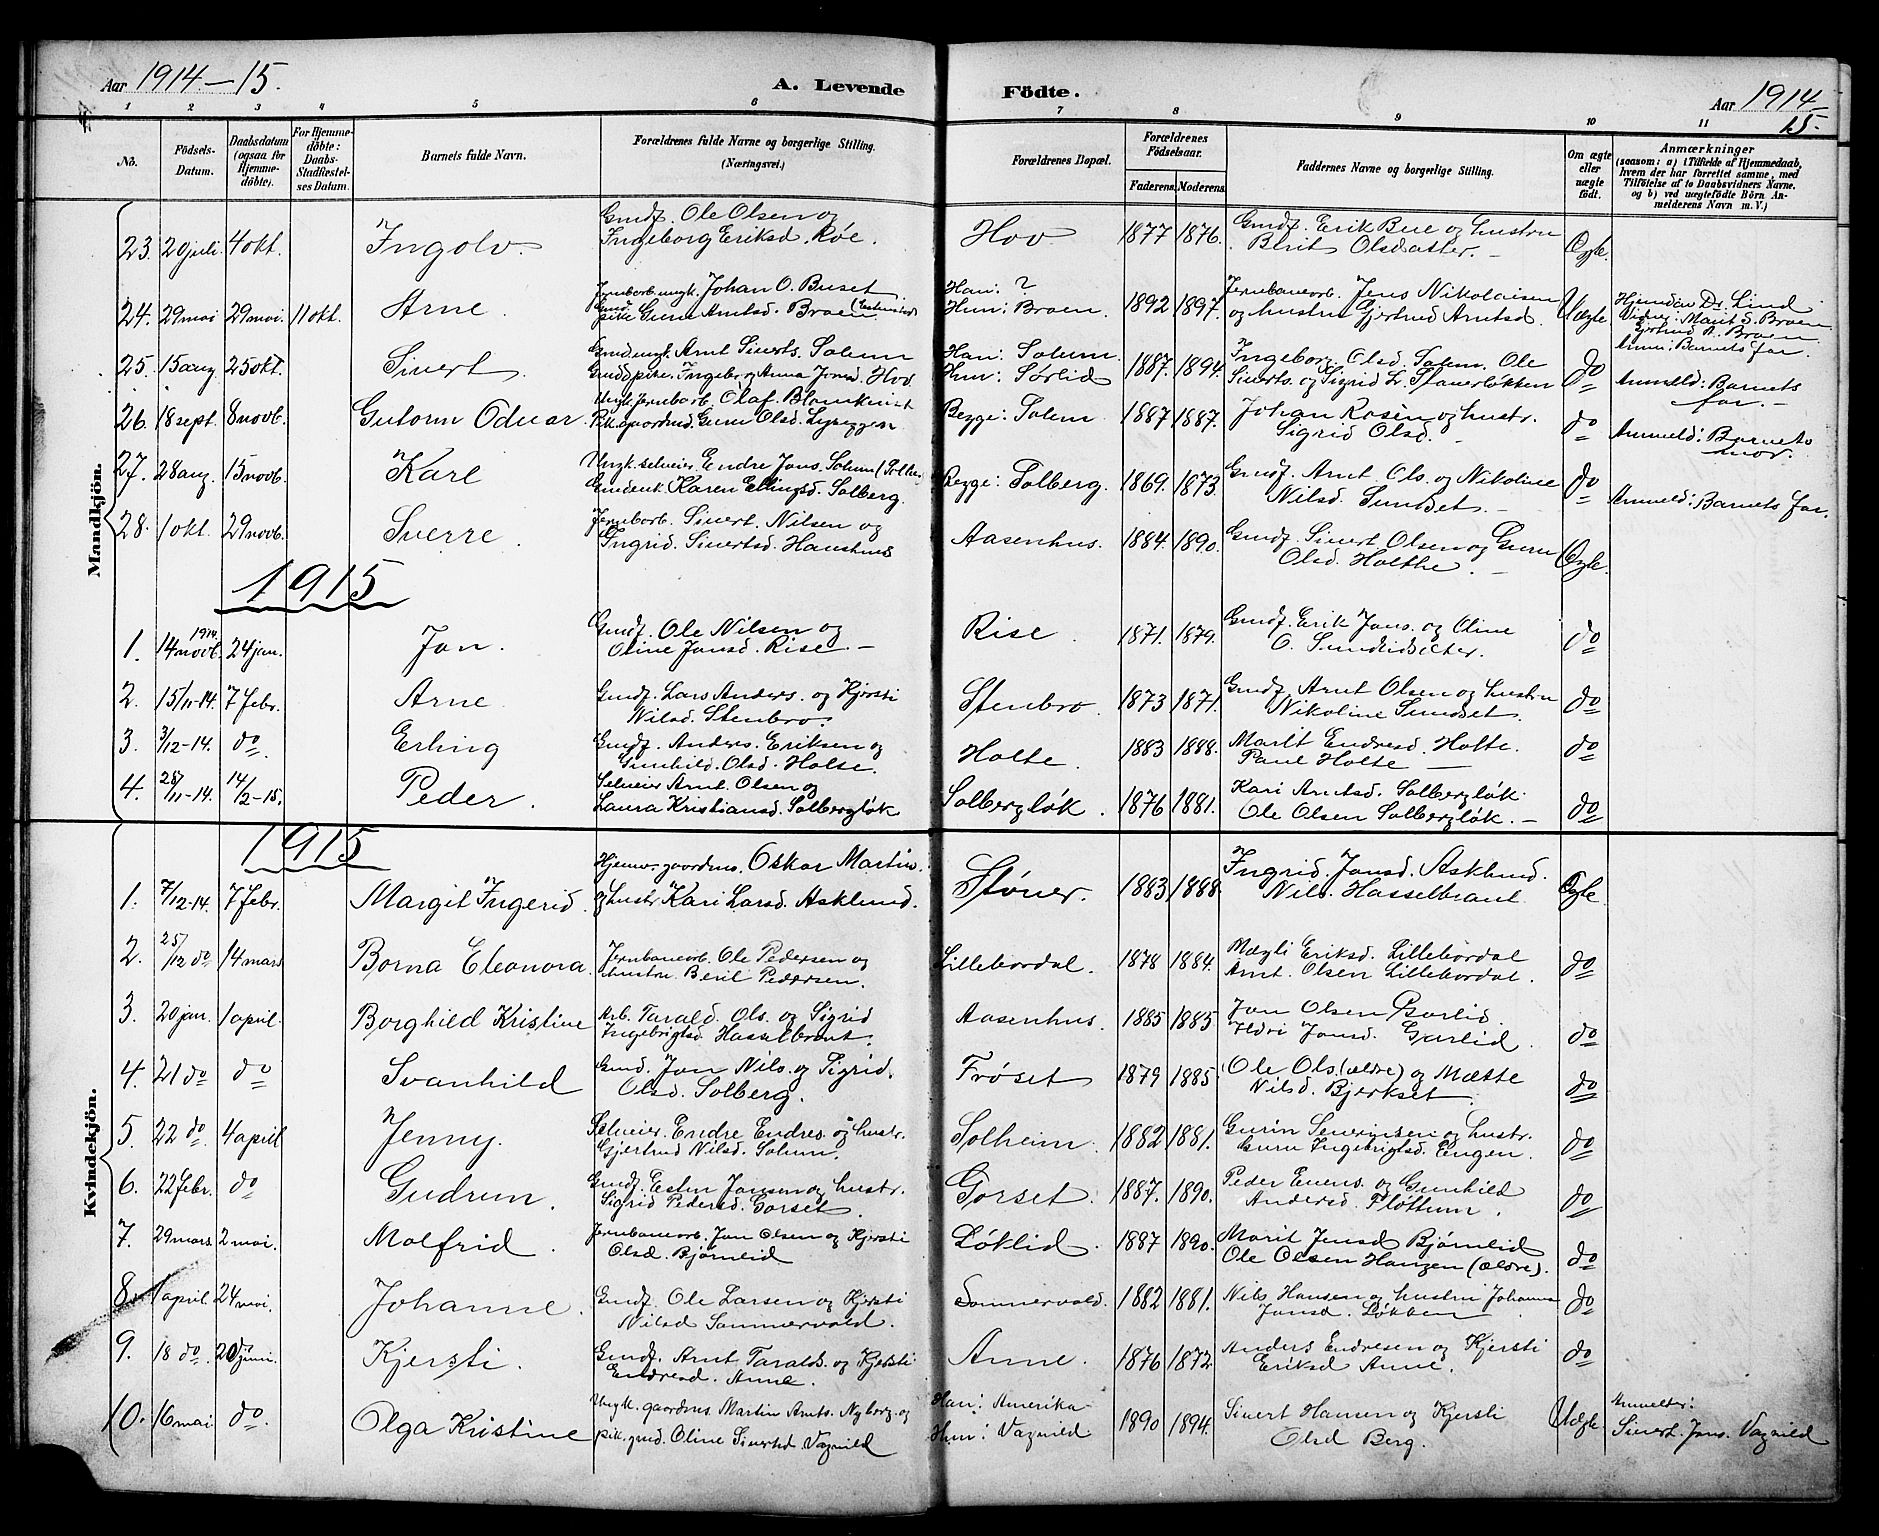 Aar 1914-15. A. Levende Födte. Aar 1914-15.
1 2 3 4 5 6 7 8 9 10 11
No. Födsels-Datum. Daabsdatum (ogsaa for Hjemmedöbte). For Hjemmedöbte: Daabs-Stadfestelses Datum. Barnets fulde Navn. Forældrenes fulde Navne og borgerlige Stilling. (Næringsvei.) Forældrenes Bopæl. Forældrenes Födselsaar. Faderens. Moderens. Faddernes Navne og borgerlige Stilling. Om ægte eller uægte födt. Anmærkninger (saasom: a) i Tilfælde af Hjemmedaab, hvem der har forrettet samme, med Tilföielse af to Daabsvidners Navne, og b) ved uægtefödte Börn Anmelderens Navn m. V.)
Mandkjön.
23. 20 juli. 4 okt. Ingolv. Gmdf. Ole Olsen og Ingeborg Eriksd. Røe. Hov 1877 1876. Gmdf. Erik Bue og hustru Berit Olsdatter. Ægte.
24. 29 mai 29 mai. 11 okt. Arne Jernbarb. ungk. Johan O. Buset pike Guru Arntsd. Broen Han: ? Hun: Broen 1892 1897. Jernbaneorb. Jens Nikolaisen og hustru Gjertrud Arntsd. Uægte Hjemdøn Dr. Lind Vidner: Marit S. Broen Gjertrud A. Broen Anm: Barnets far.
25. 15 aug 25 okt. Sivert. Gmd. ungk. Arnt Siverts. Solem Gmdspike. Ingeborg Anna Jonsd. Hov Han: Solem. Hun: Sørlid 1887. 1894. Ingeborg Olsd. Solem. Ole Siverts. og Sigrid Lr. Stauerløkken do Anmeld: Barnets far.
26. 18 sept. 8 novb. Gutorm Oduar. Ungk. Jernbarb. Olaf Blomkvist Pik. gaardmd. Guru Olsd. Lyseggen Begge: Solem. 1887 1887. Johan Rosèn og hustr. Sigrid Olsd. do Anmeld: Barnets mor.
27. 28 aug. 15 novb. Kare Ungk. selveier Endre Jons. Solem Gmdenk. Karen Ellingsd. Solberg. Begge: Solberg. 1869. 1873. Gmdf. Arnt Ols. og Nikoline Nilsd. Sundset. do Anmeld: Barnets far.
28. 1 okt. 29 novb. Sverre. Jernbarb. Sivert Nilsen og Ingrid Sivertsd. Haushus Aasenhus. 1884. 1890. Gmdf. Sivert Olsen og Guru Olsd. Holthe. Ægte.
1915
1. 1914. 14 novb. 24 jan. Jon. Gmdf. Ole Nilsen og Oline Jonsd. Rise. Rise 1871. 1879. Gmdf. Erik Jons. og Oline O. do
2. 15/11-14. 7 febr. Arne Gmdf. Lars Anders. og Kjersti Nilsd. Stenbro. Stenbro. 1873 1871. Gmdf. Arnt Olsen og hustru Nikoline Sundset. do
3. 3/12-14. do. Erling Gmdf. Anders Eriksen og Gunhild Olsd. Holte. Holte. 1883 1888. Marit Endresd. Holte. Paul Holte do
4. 28/11-14. 14/2-15. Peder. Selveier Arnt Olsen og Laura Kristiansd. Solbergløk Solbergløk. 1876 1881. Kari Arntsd. Solbergløk. Ole Olsen Solbergløk. do
1915
Kvindekjön.
1. 7/12-14. 7 febr. Margit Ingerid. Hjemv. gaardm. Oskar Martin. og hustr Kari Larsd. Asklund. Støner. 1883 1888. Ingrid Jonsd. Asklund. Nils Hasselbrant. Ægte.
2. 25/12 do 14 mars Borna Eleonora. Jernbaneorb. Ole Pedersen og hustru Beril Pedersen. Lillebordal. 1878 1884. Eriksd. Lillebordal Arnt Olsen Lillebordal. do
3. 20 jan. 1 april. Borghild Kristine Arb. Tarald Ols. og Sigrid Ingebrigtsd. Hasselbrant. Aasenhus. 1885 1885 Jon Olsen Jonsd. Garlid. do
4. 21 do do Svanhild Gmd. Jon Nils. og Sigrid. Olsd. Solberg. Frøset 1879 1885. Ole Ols. (ældre) og Mætte Nilsd. Bjerkset. do
5. 22 do. 4 april Jenny. Selveier. Endre Endres. og hustr. Gjertrud Nilsd. Solem. Solheim. 1882 1881. Guru Ingebrigtsd. Engen. do
6. 22 febr. do Gudrun. Gmdf. Esten Jonsen og hustr. Sigrid Pedersd. Gorset. Gorset. 1887. 1890. Peder Evens. og Gunhild Andersd. Fløttum. do
7. 29 mars. 2 mai. Malfrid. Jernbaneorb. Jon Olsen og Kjersti Olsd. Bjørnlid Løklid. 1887 1890. Marit Jensd. Bjørnlid Ole Olsen Haugen (ældre). do
8. 1 april. 24 mai. Johanne. Gmdf. Ole Larsen og Kjersti Nilsd Sommervold. Sommervold. 1882 1881. Nils Hansen og hustru Johanna Jonsd. Løkken do
9. 18 do. 20 juni. Kjersti. Gmdf. Arnt Taralds. og Kjersti Endresd. Anne. Anne. 1876 1872. Anders Endresen og Kjersti Eriksd Anne. do
10. 16 mai do. Olga Kristine Ungk. gaardms. Martin Arnts. Nyborg og pik. gmd. Oline Sivertsd. Vagnild Han: Amerika Hun: Vagnild 1890 1894. Sivert Hansen og Kjersti Olsd Berg. Uægte Anmelder: Sivert Jons. Vagnild